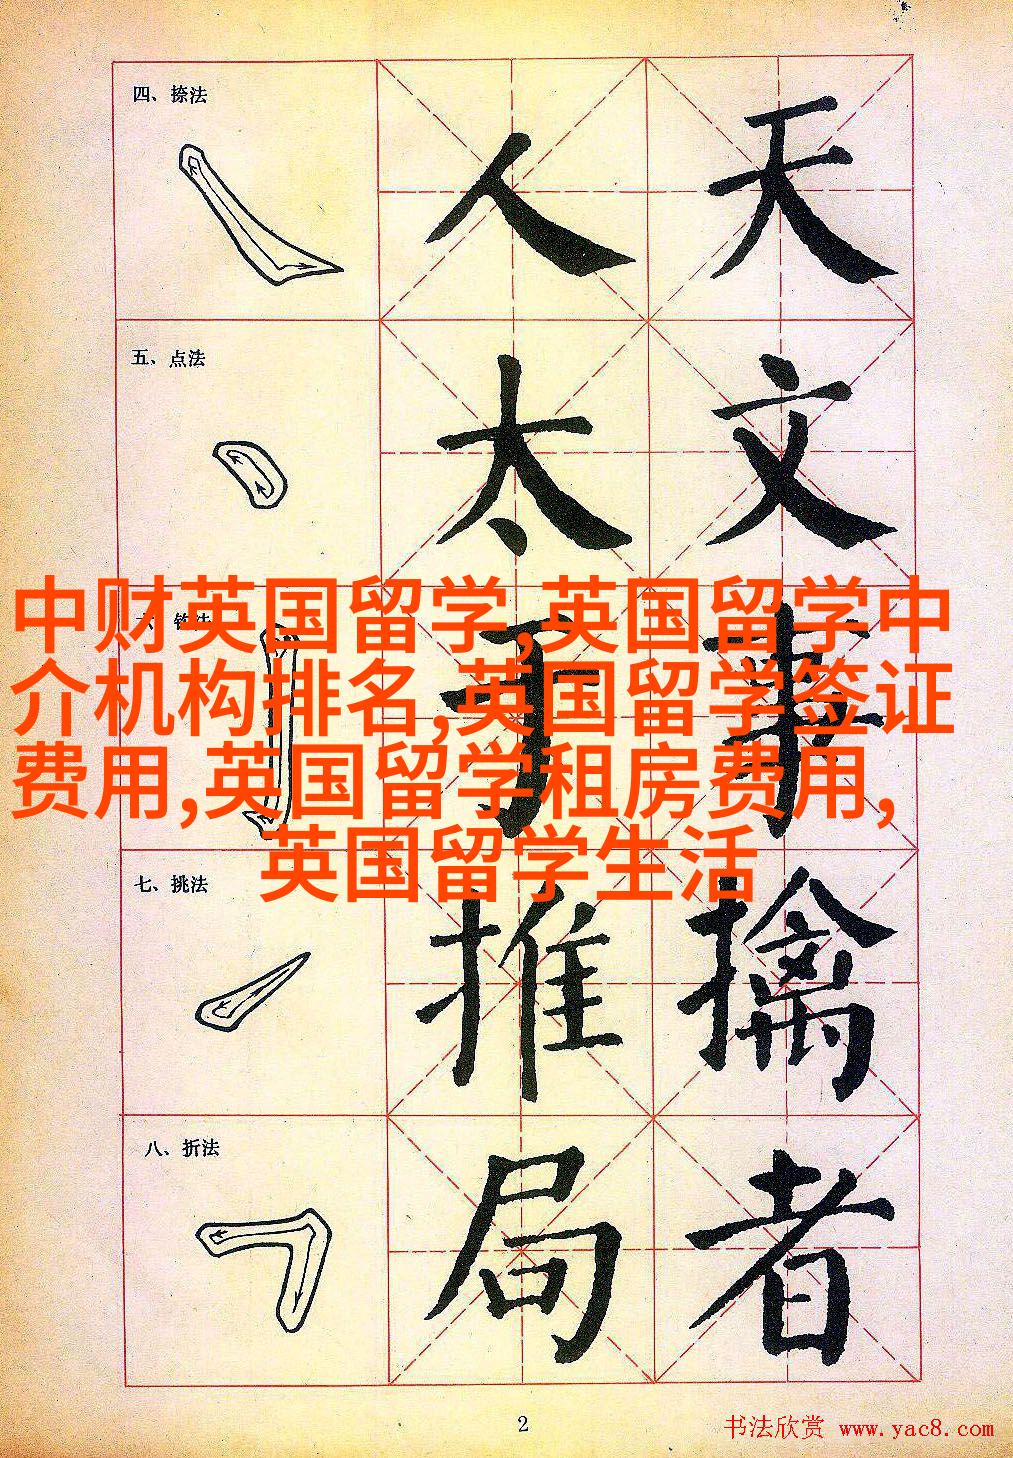 四、捺法
人 天
五、点法
太 文
六、钩法
于 事
中财英国留学,英国留学中
介机构排名,英国留学签证
费用,英国留学租房费用,
英国留学生活
七、挑法
推 擒
八、折法
局 者
2
书法欣赏 www.yac8.com